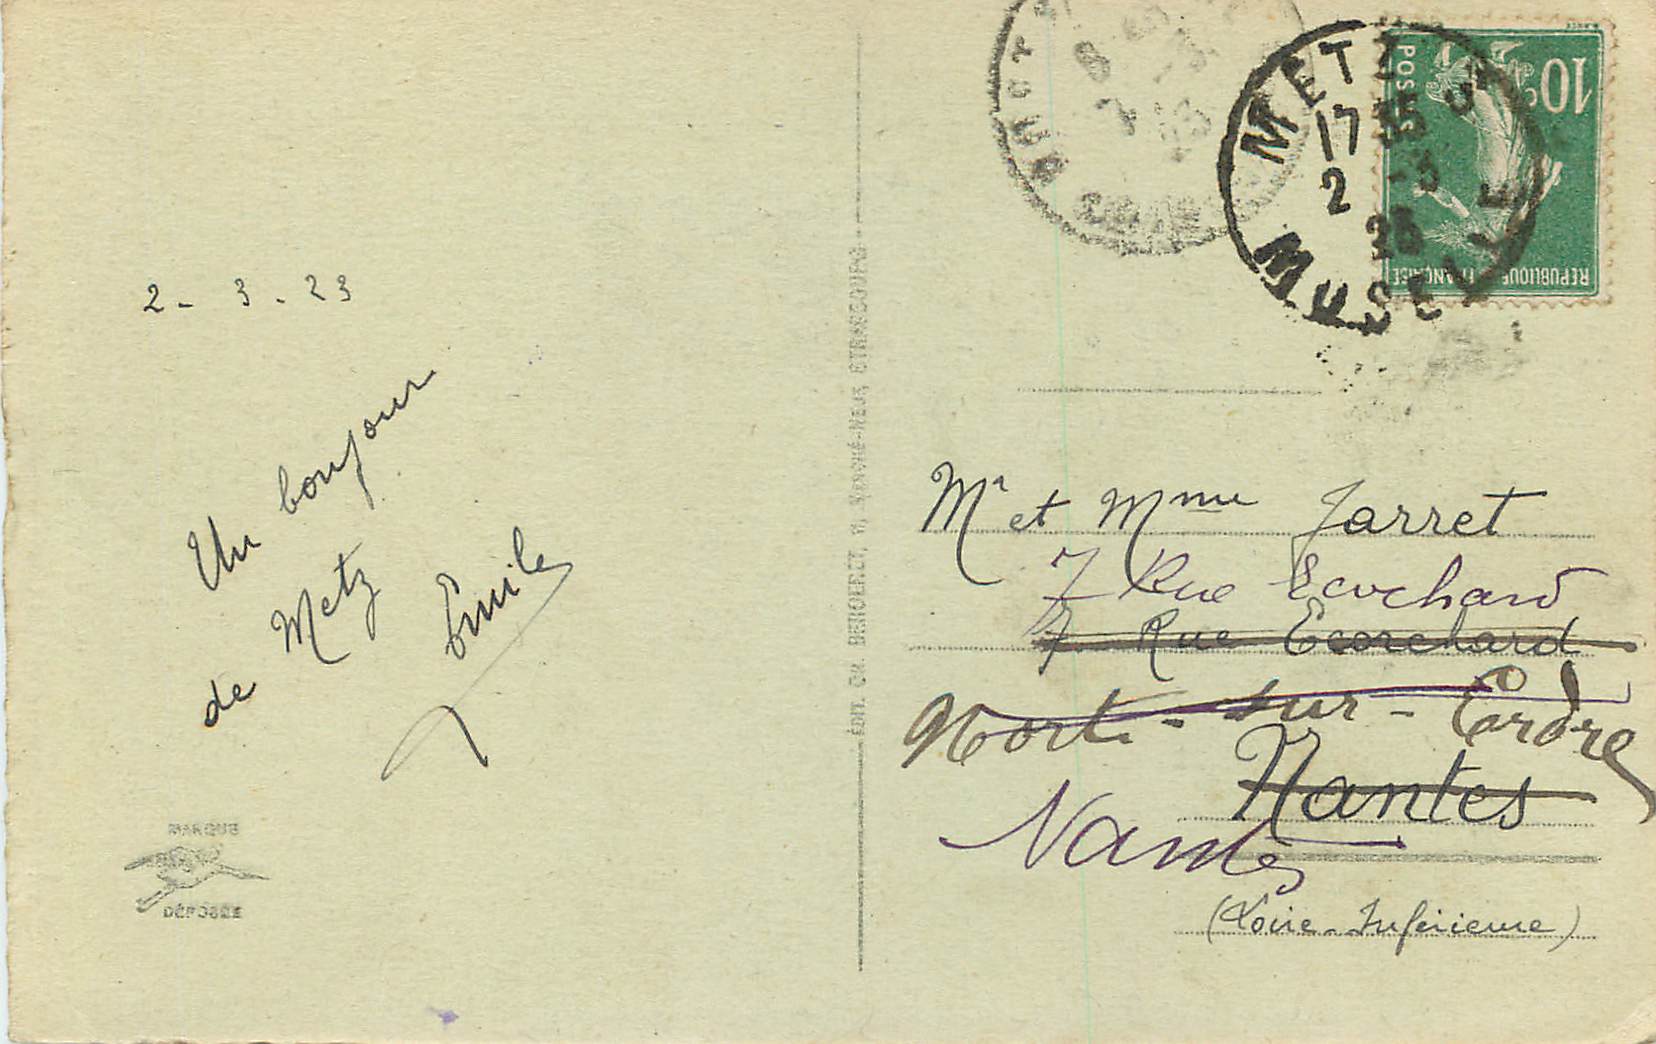 2 - 3 - 23
Un bonjour
de Metz
Emile
MARQUE
DÉPOSÉE
ÉDIT. CH. BERGERET, STRASBOURG
METZ
17 35
2 - 3
23
MOSELLE
10c
POSTES
REPUBLIQUE FRANÇAISE
Mr et Mme Jarret
7 Rue Ecochard
7 Rue Ecorchard
Nort - sur - Erdre
Nantes
Nantes
(Loire-Inférieure)